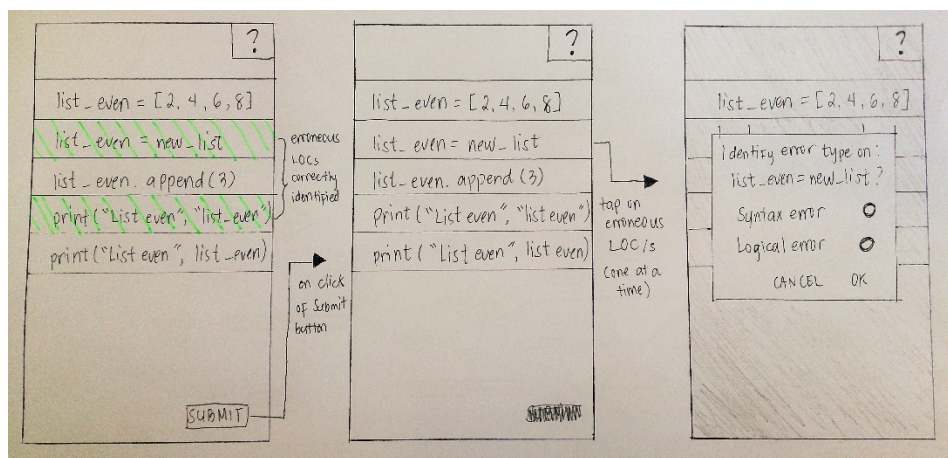 ?
list_even = [2, 4, 6, 8]
list_even = new_list
list_even. append(3)
print("List even", "list_even")
print("List even", list_even)
SUBMIT
erroneous
LOCs
correctly
identified
on click
of Submit
button
?
list_even = [2, 4, 6, 8]
list_even = new_list
list_even. append(3)
print("List even", "list even")
print("List even", list even)
tap on
erroneous
LOC is
(one at a
time)
?
list_even = [2, 4, 6, 8]
identify error type on:
list_even = new_list?
Syntax error
Logical error
CANCEL OK